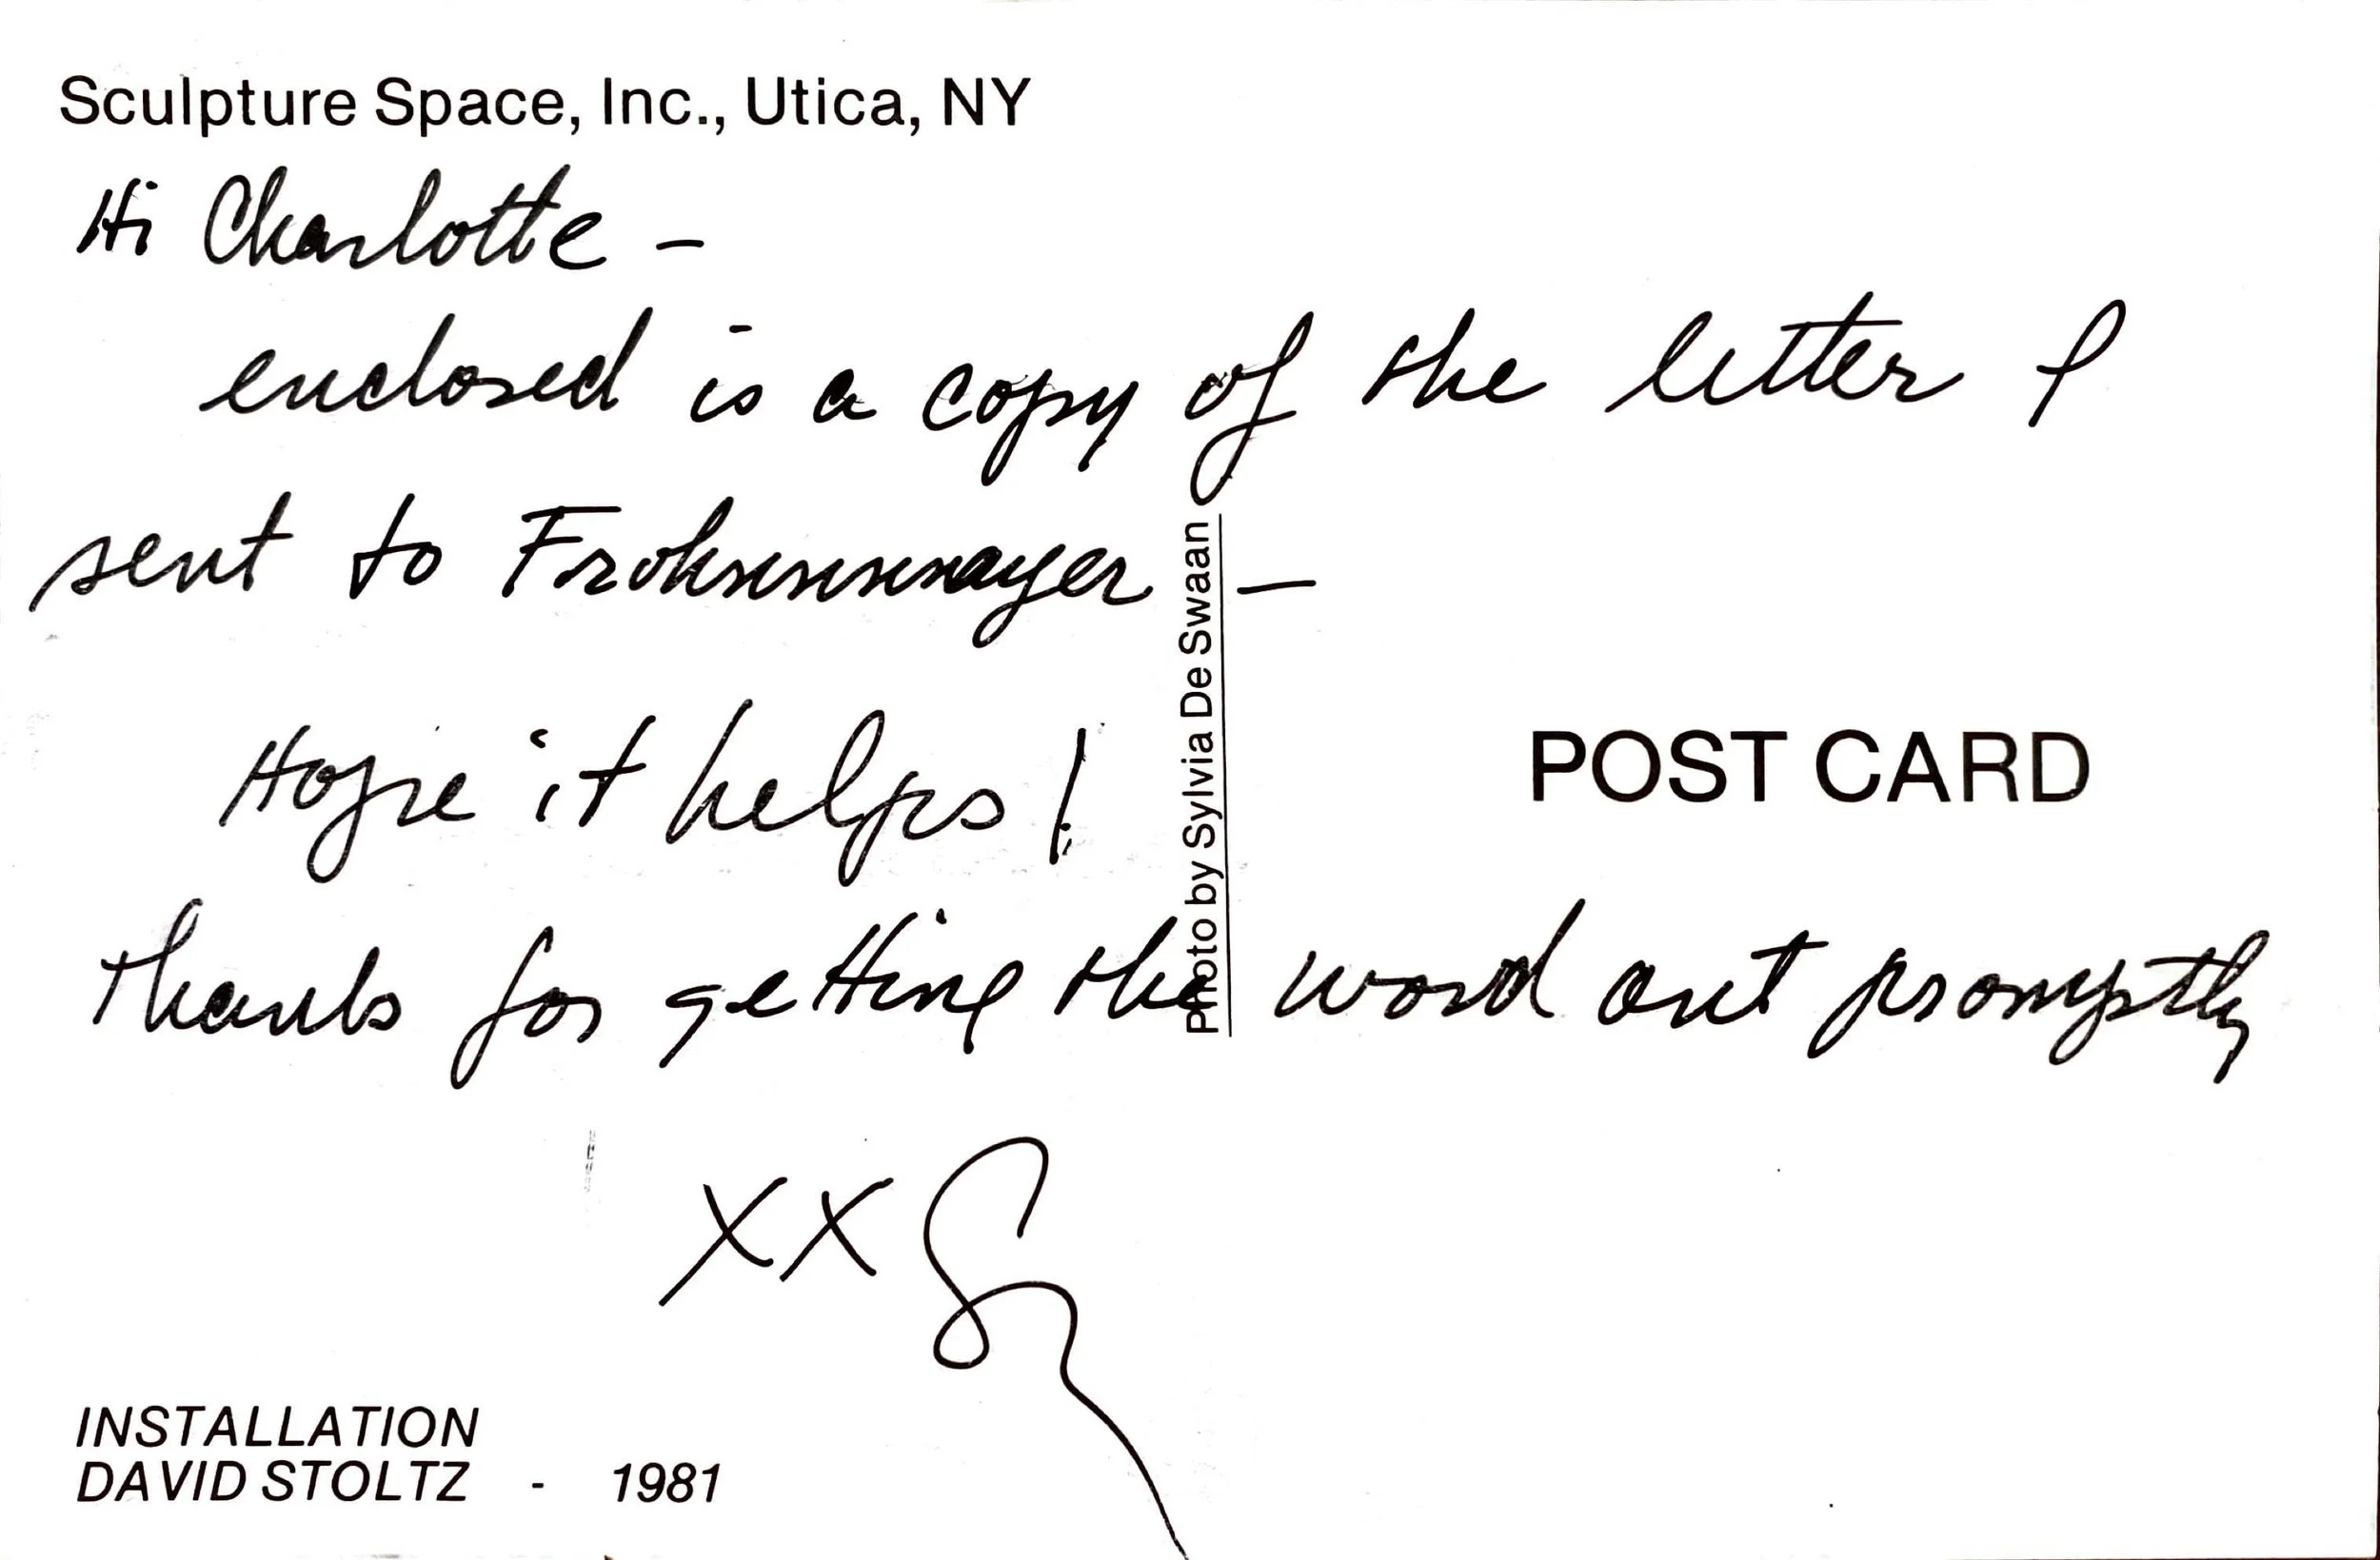 Sculpture Space, Inc., Utica, NY
Hi Charlotte –
enclosed is a copy of the letter I
sent to Frohnmayer –
Hope it helps!
Thanks for getting the word out promptly
XX
Photo by Sylvia De Swaan
POST CARD
INSTALLATION
DAVID STOLTZ - 1981